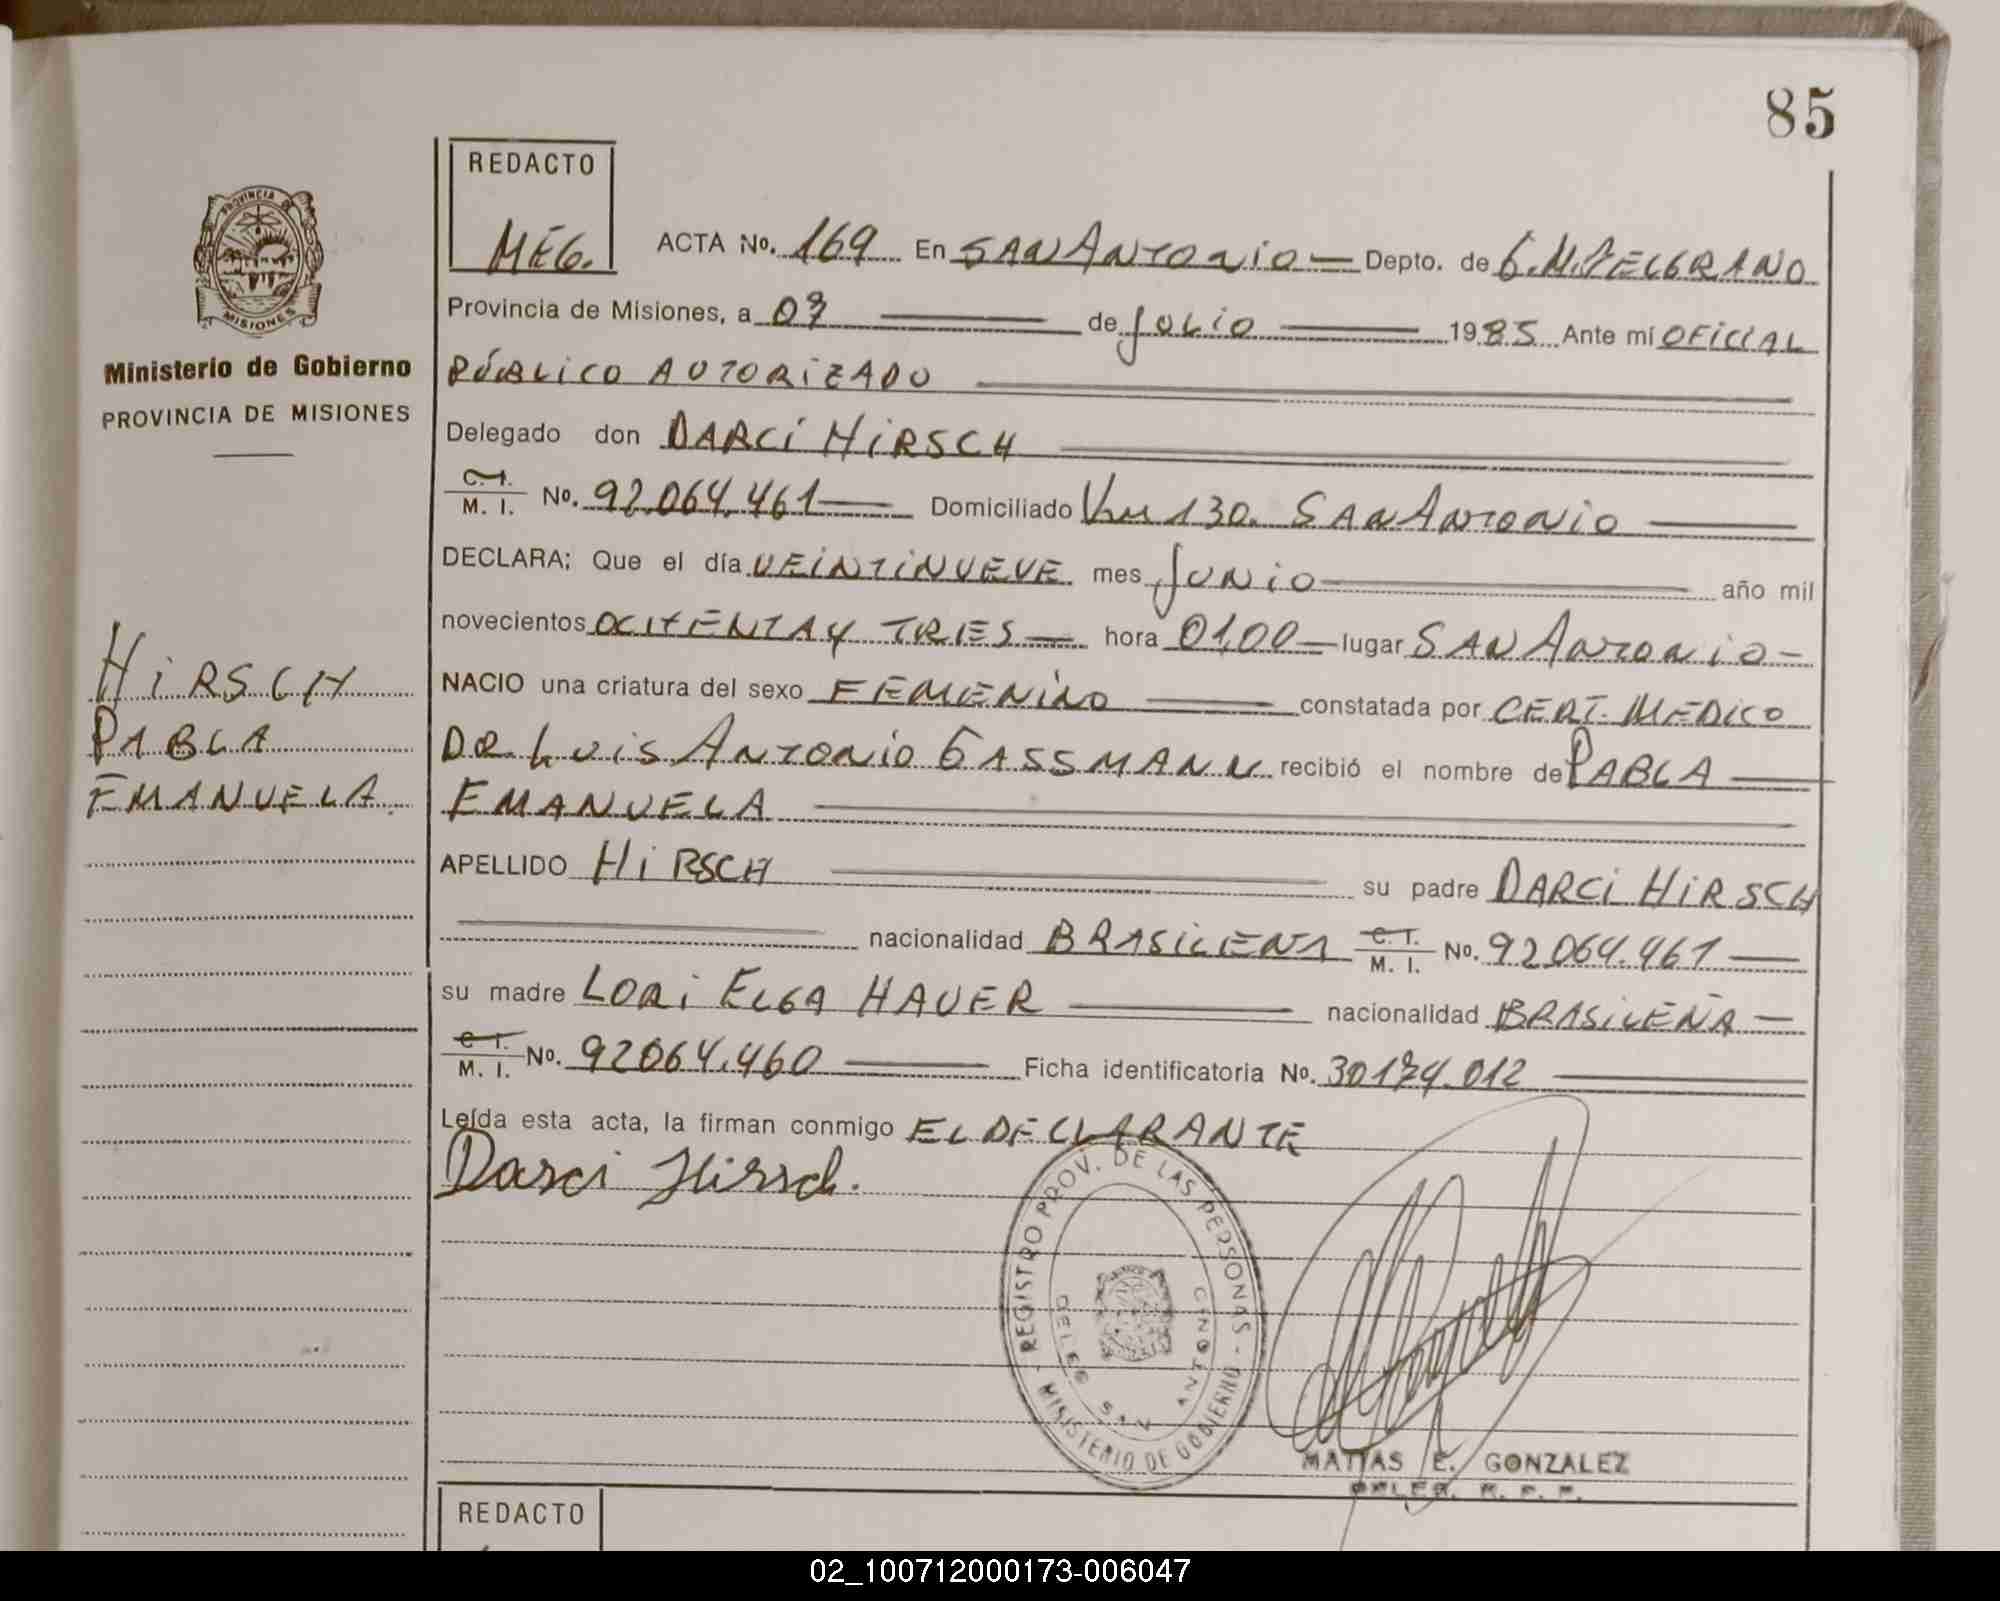 85
REDACTO
MEG.
PROVINCIA DE
MISIONES
Ministerio de Gobierno
PROVINCIA DE MISIONES
HIRSCH
PABLA
EMANUELA.
ACTA No. 169 En SAN ANTONIO — Depto. de G.M.BELGRANO
Provincia de Misiones, a 03 de JULIO 1985 Ante mí OFICIAL
PÚBLICO AUTORIZADO
Delegado don DARCI HIRSCH
C. I. M. I. No. 92.064.461 Domiciliado Km 130. SAN ANTONIO
DECLARA; Que el día VEINTINUEVE mes JUNIO año mil
novecientos OCHENTA Y TRES hora 01,00 lugar SAN ANTONIO-
NACIO una criatura del sexo FEMENINO constatada por CERT. MEDICO
DR. LUIS ANTONIO GASSMANN recibió el nombre de PABLA
EMANUELA
APELLIDO HIRSCH su padre DARCI HIRSCH
nacionalidad BRASILENA C. I. M. I. No. 92.064.461
su madre LORI ELGA HAUER nacionalidad BRASILEÑA
C. I. M. I. No. 92064.460 Ficha identificatoria No. 30174.012
Leída esta acta, la firman conmigo EL DECLARANTE
Darci Hirsch.
REGISTRO PROV. DE LAS PERSONAS - MINISTERIO DE GOBIERNO -
DELEG SAN ANTONIO
MATIAS E. GONZALEZ
REDACTO
02_100712000173-006047